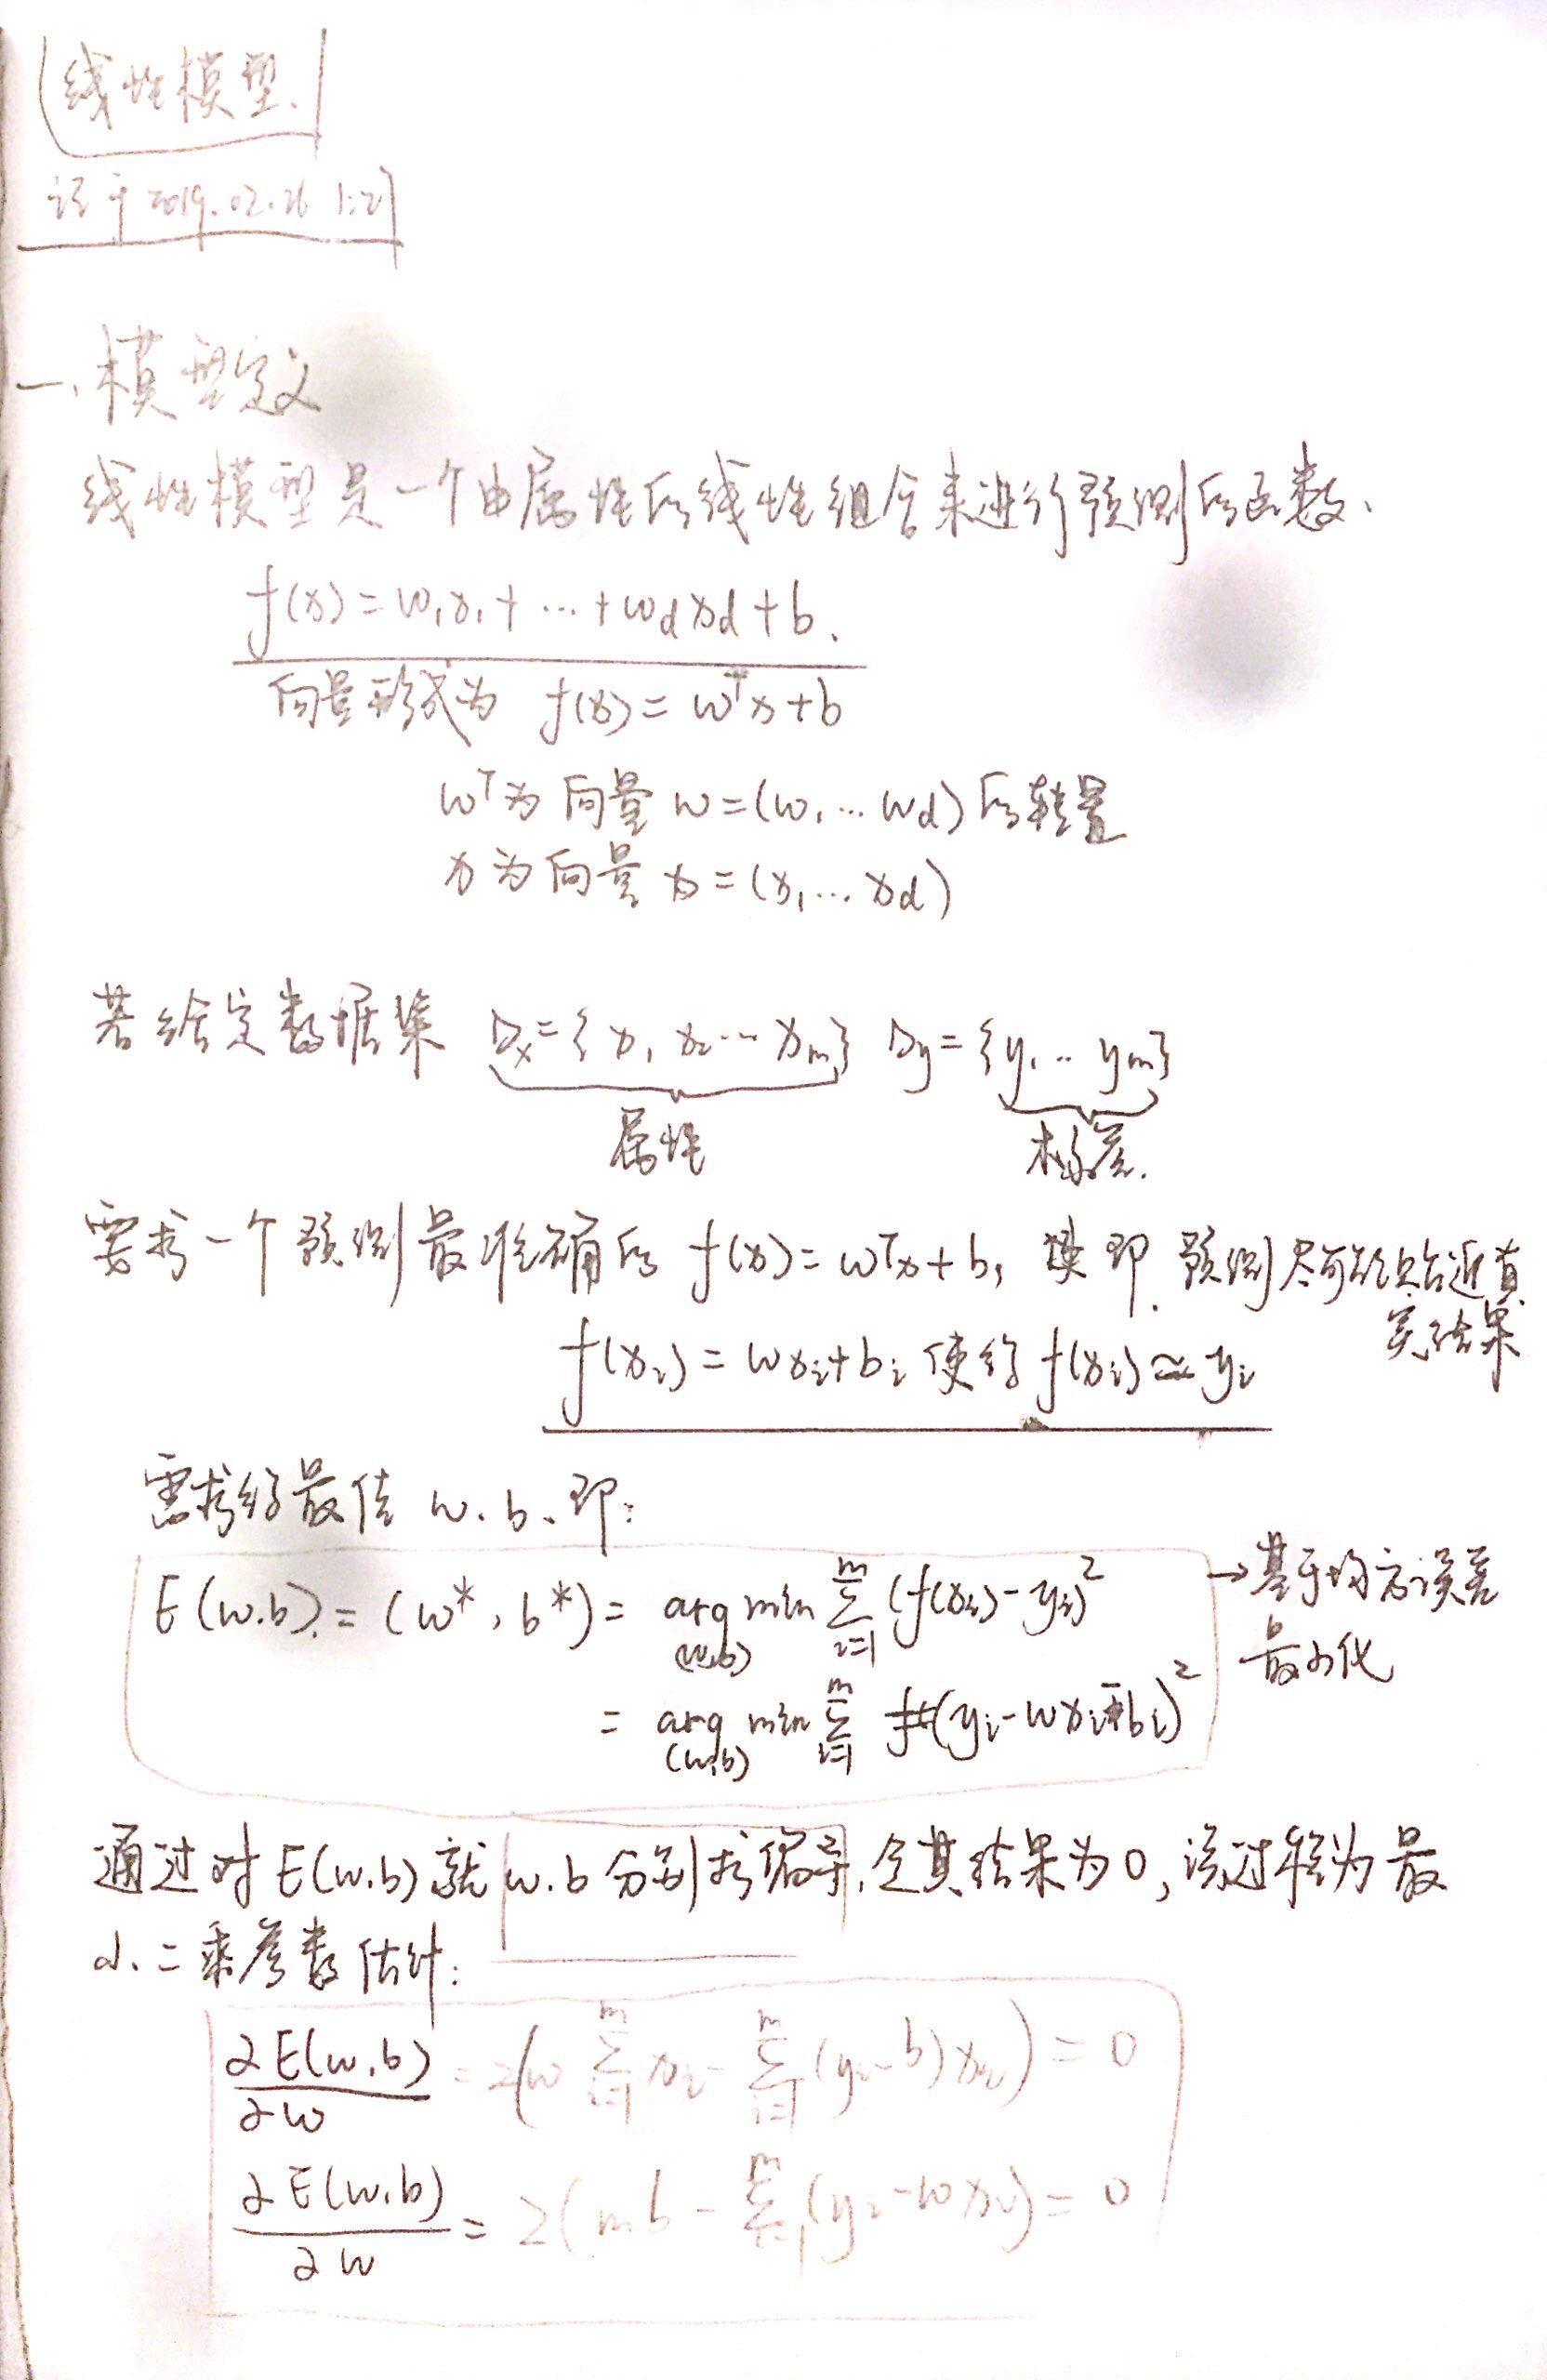 线性模型.
记于 2019.02.26 1:21
一、模型定义
线性模型是一个由属性的线性组合来进行预测的函数、
f(x)=w₁x₁+…+w_d x_d+b.
向量形式为 f(x)=wᵀx+b
wᵀ为向量 w=(w₁…w_d)的转置
x为向量 x=(x₁…x_d)
若给定数据集 Dx={x₁ x₂…x_m} Dy={y₁…y_m}
属性 标签.
需求一个预测最准确的 f(x)=wᵀx+b, 即. 预测尽可能贴近真
实结果
f(xᵢ)=wxᵢ+bᵢ 使得 f(xᵢ)≃yᵢ
需求得最佳 w.b、即:
E(w.b).=(w*,b*)= arg min_(w,b) ∑_{i=1}^{m} (f(xᵢ)-yᵢ)² →基于均方误差
最小化
= arg min_(w,b) ∑_{i=1}^{m} (yᵢ-wxᵢ-bᵢ)²
通过对E(w.b)就w.b分别求偏导,令其结果为0,该过程为最
小二乘参数估计:
∂E(w.b)/∂w =2(w ∑_{i=1}^{m} xᵢ- ∑_{i=1}^{m} (yᵢ-b)xᵢ)=0
∂E(w.b)/∂w = 2(mb- ∑_{i=1}^{m} (yᵢ-wxᵢ)=0